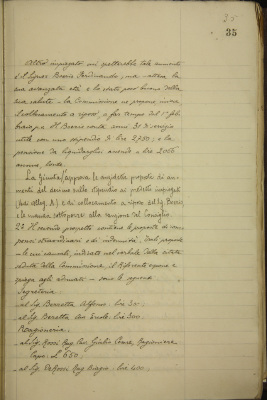 35
35
Altro impiegato cui spetterebbe tale aumento
è il Signor Bosio Ferdinando, ma attesa la
sua avanzata età e lo stato poco buono della
sua salute la Commissione ne propone invece
il collocamento a riposo, a far tempo dal 1° feb-
braio p.v. Il Bosio conta anni 31 di servizio
utile con uno stipendio di lire 2,750 e la
pensione da liquidarglisi ascende a lire 2006
annue, lorde.
La Giunta approva le anzidette proposte di au-
mento del decimo sullo stipendio ai predetti impiegati
(vedi alleg. A) e di collocamento a riposo del Sig. Bosio,
e le manda sottoporre alla sanzione del Consiglio.
2° Il secondo prospetto contiene le proposte di com-
pensi straordinari e di indennità, dalle proposte
e le cui , indicate nel verbale della citata
seduta della Commissione, il Riferente espone e
spiega agli adunati sono le seguenti
Segreteria.
al Sig. Borretta Alfonso lire 50.
al Sig. Beretta lire 300.
Ragioneria.
al Sig. Rossi Rag. Cav. Giulio Cesare, Ragioniere
Capo L. 650.
al Sig. Rag. Biagio lire 400.